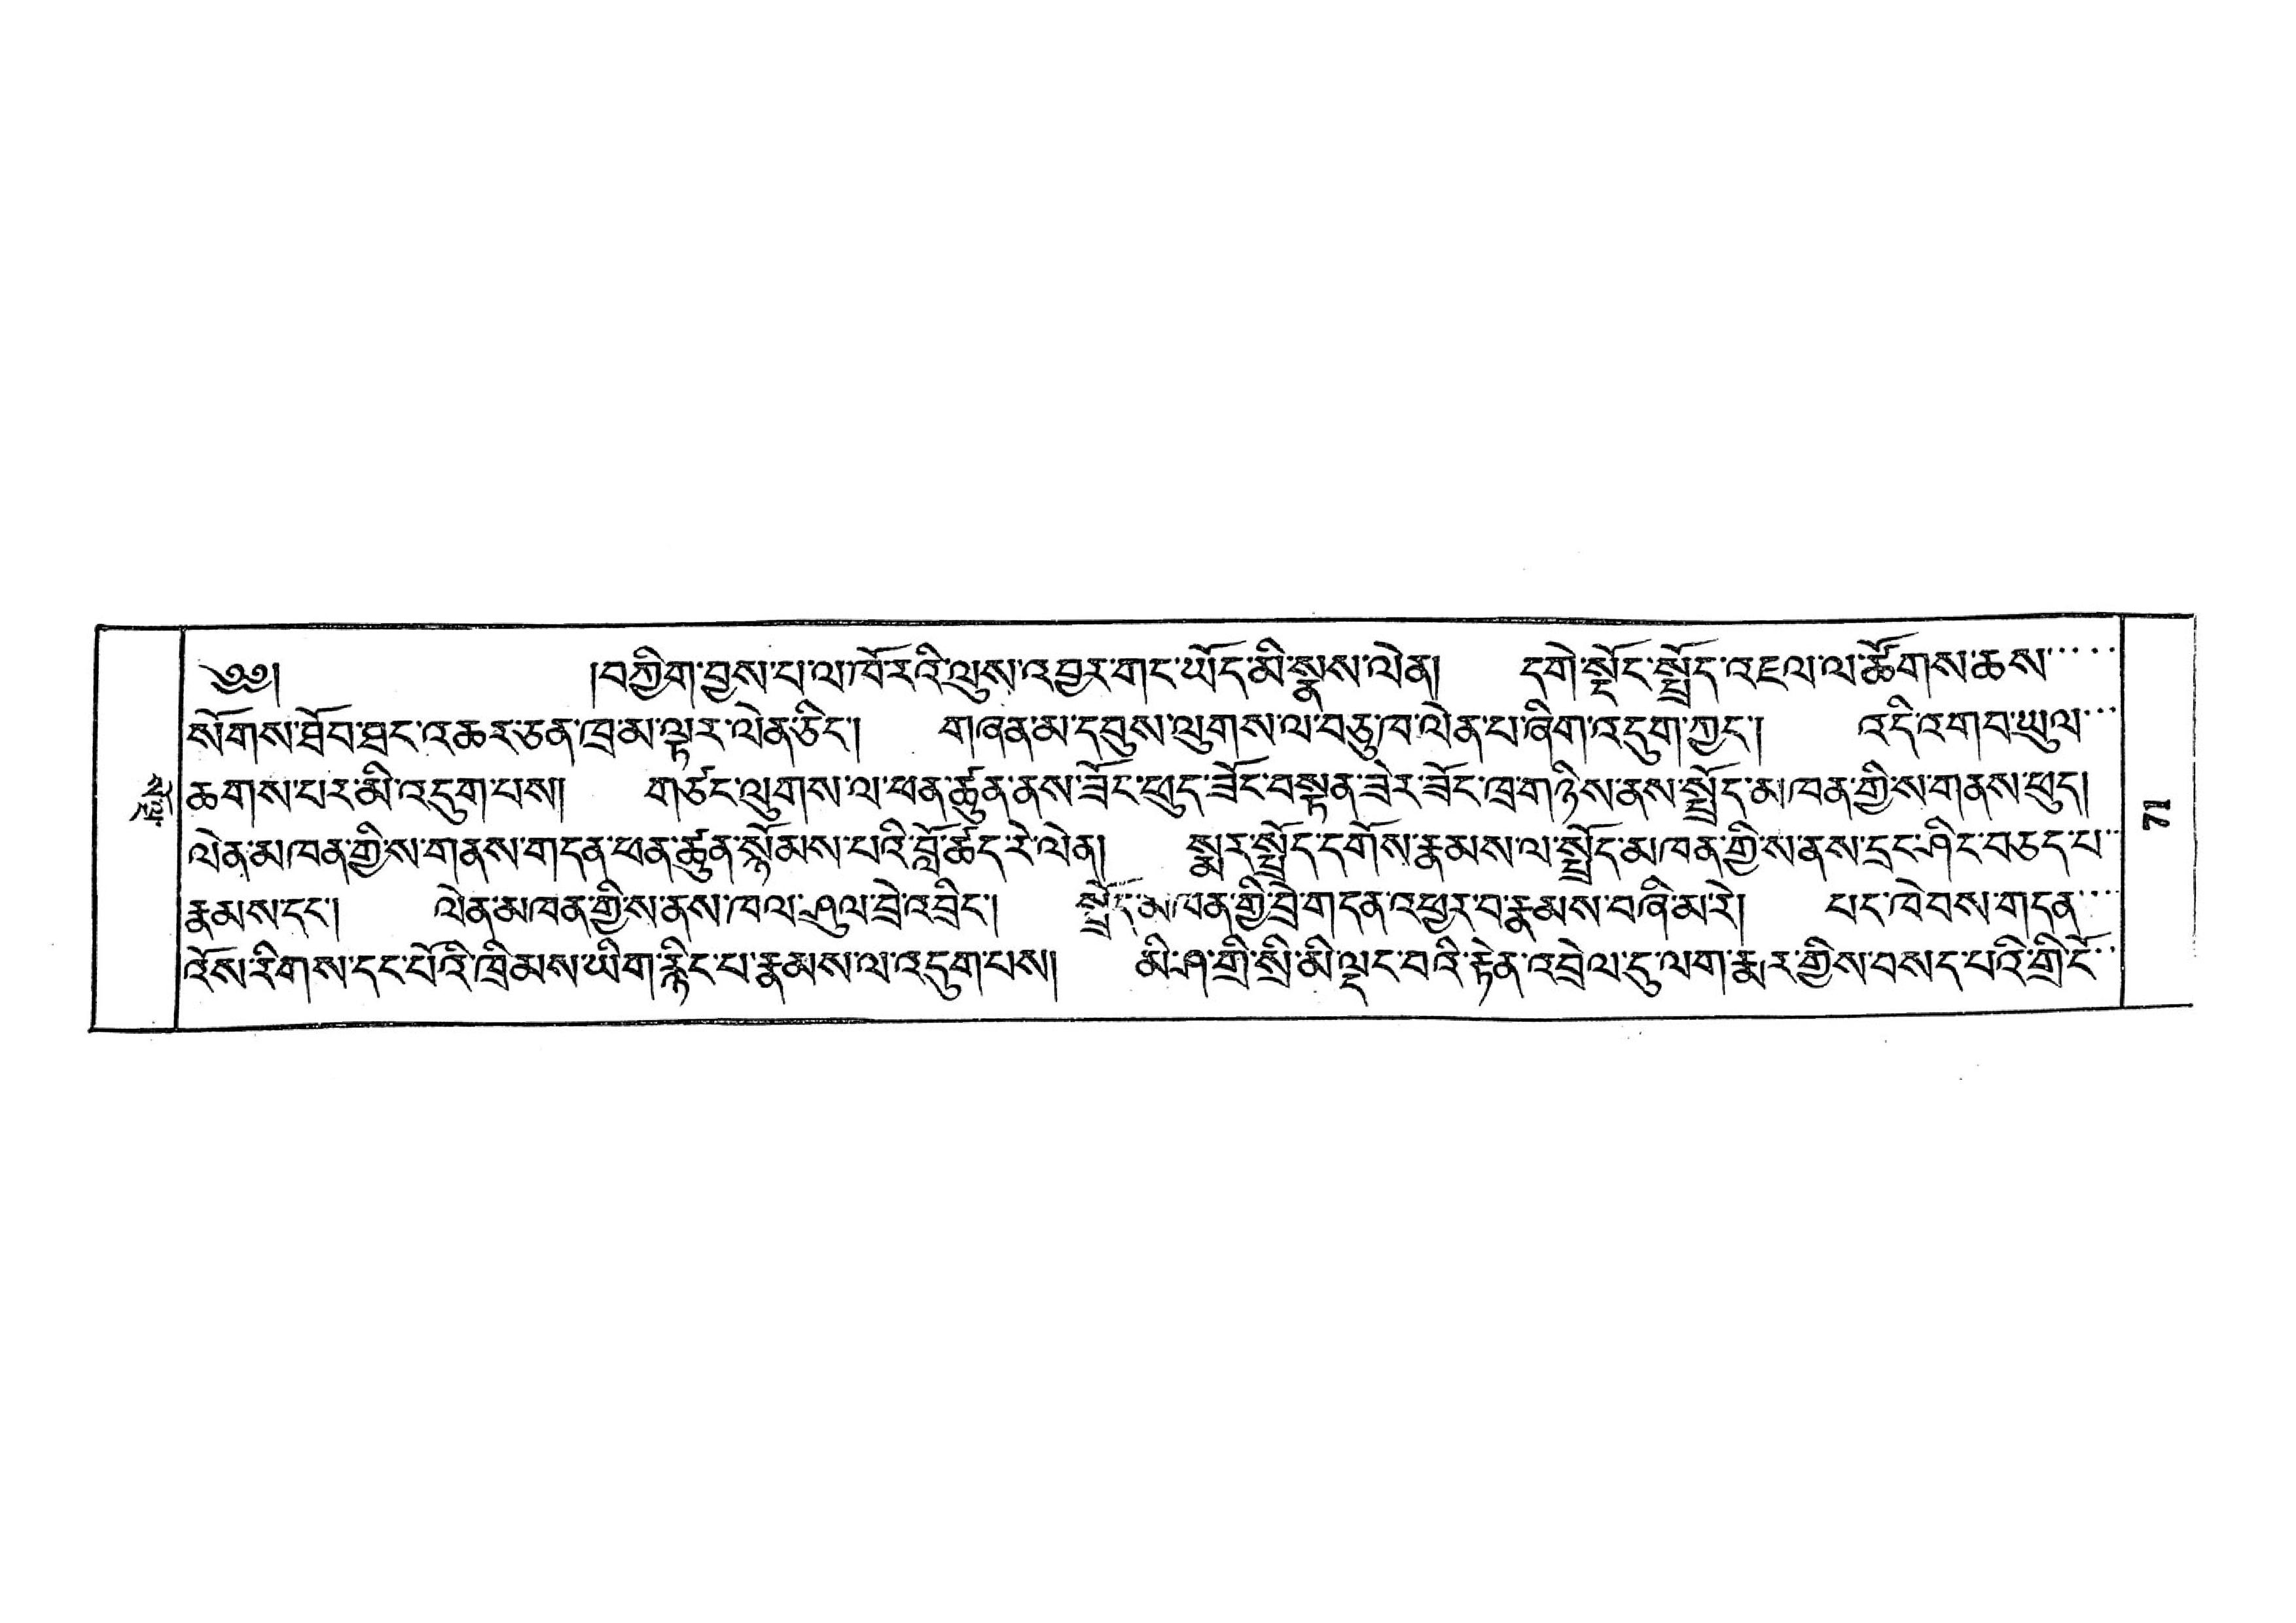 ༄༅། །བཀྱིག་བྱས་པ་ལ་ཁོརའི་ལུས་འབྱར་གང་ཡོད་མི་སྣས་ལེན། དགེ་སྡོང་སྤྲོད་འཇལ་ལ་ཚོགས་ཆས་་་་་
སོགས་ཐོབ་ཐང་འཆར་ཅན་ཁྲམ་ལྟར་ལེན་ཅིང་། གཞན་མ་དབུས་ལུགས་ལ་བཅུ་ཁ་ལེན་པ་ཞིག་འདུག་ཀྱང་། འདི་འགབ་ཡུལ་་་
ཆགས་པར་མི་འདུག་པས། གཙང་ལུགས་ལ་ཕན་ཚུན་ནས་ཟོང་ཕུད་ཟོང་བསྟན་ཟེར་ཟོང་ཁྲ་གཉིས་ནས་སྤྲོད་མཁན་གྱིས་གནས་ཕུད།
ལེན་མཁན་གྱིས་གནས་གདན་ཕན་ཚུན་སྙོམས་པའི་བློ་ཚད་རེ་ལེན། སྨར་སྤྲོད་དགོས་རྣམས་ལ་སྤྲོད་མཁན་གྱིས་ནས་དྲང་ཤིང་བཅད་པ་་
རྣམས་དང་། ལེན་མཁན་གྱིས་ནས་ཁལ་ཤུལ་བྲེ་འབྲིང་། སྤྲོད་མཁན་གྱི་བྲེ་གདན་འཕྱར་བ་རྣམས་བཞི་མ་རེ། པང་ཁེབས་གདན་་་་
འོས་རིགས་དང་པོའི་ཁྲིམས་ཡིག་རྙིང་པ་རྣམས་ལ་འདུག་པས། མི་ཤ་གྲི་སྲི་མི་ལྡང་བའི་རྟེན་འབྲེལ་དུ་ལག་རྨར་གྱིས་བསད་པའི་གྲི་ངོ་་